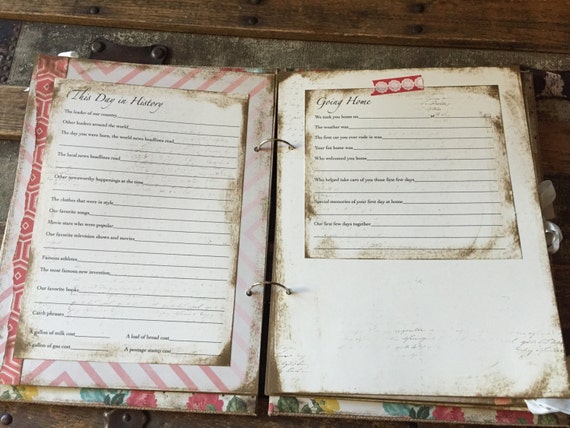 This Day in History
The leader of our country
Other leaders around the world
The day you were born, the world news headlines read
The local news headlines read
Other noteworthy happenings at the time
The clothes that were in style
Our favorite songs
Movie stars who were popular
Our favorite television shows and movies
Famous athletes
The most famous new invention
Our favorite books
Catch phrases
A gallon of milk cost A loaf of bread cost
A gallon of gas cost A postage stamp cost
Going Home
We took you home to
The weather was
The first car you ever rode in was
Your fist home was
Who welcomed you home
Who helped take care of you those first few days
Special memories of your first day at home
Our first few days together